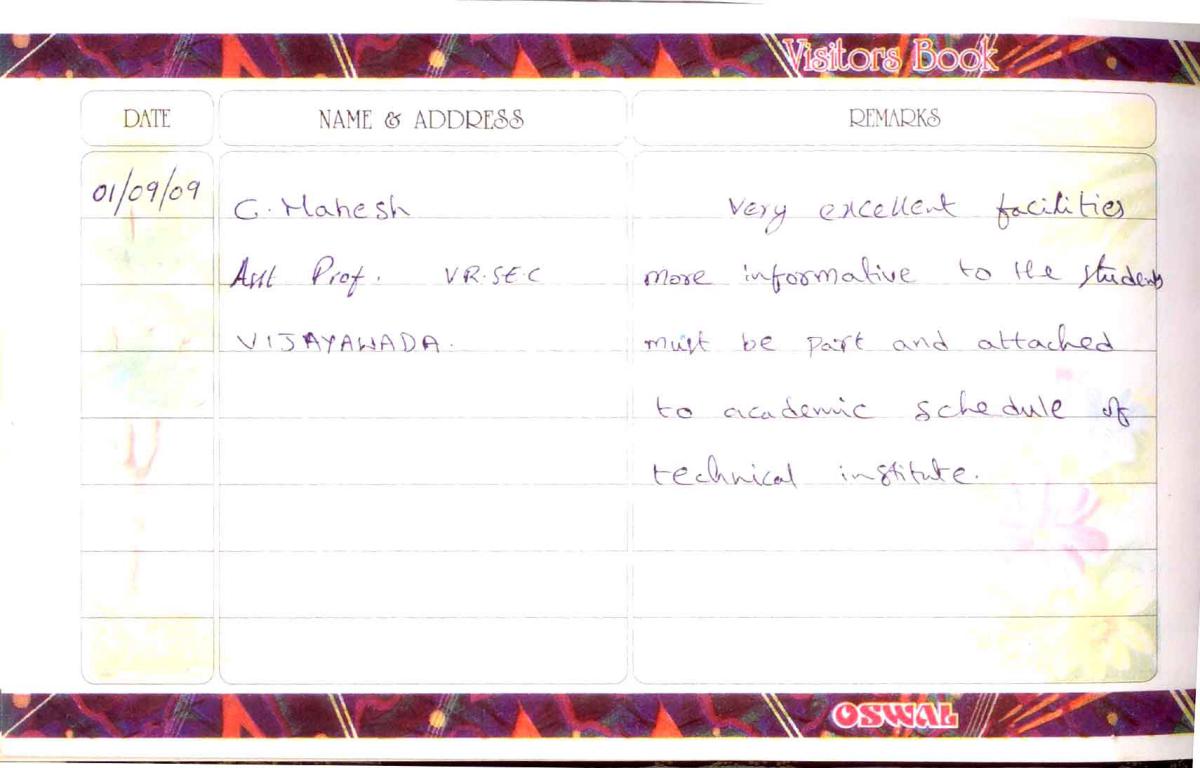 Visitors Book
DATE NAME & ADDRESS REMARKS
01/09/09 G. Mahesh Very excellent facilities
Asst Prof. V.R.SE.C more informative to the students
VIJAYAWADA. must be part and attached
to academic schedule of
technical institute.
OSWAL